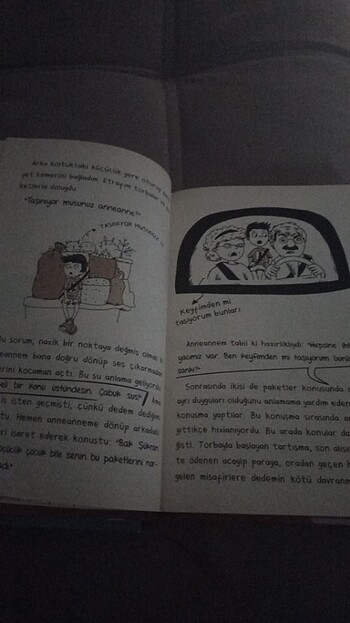 Arka koltuktaki küçücük yere oturup em
yet kemerini bağladım. Etrafım torbalar ve
kesilerle doluydu.
"Taşınıyor musunuz anneanne?"
TAŞINIYOR MUSUNUZ
Bu sorum, nazik bir noktaya değmiş olmalı
neannem bana doğru dönüp ses çıkarmadan
lerini kocaman açtı. Bu şu anlama geliyordu
bir konu üstündesin. Çabuk sus!"
iş işten geçmişti, çünkü dedem dediğim
tu. Hemen anneanneme dönüp arkadaki
eri işaret ederek konuştu: "Bak Şükran
küçücük çocuk bile senin bu paketlerini
Keyfimden mi
taşıyorum bunları
Anneannem tabii ki hazırlıklıydı: "Hepsine ih
yacımız var. Ben keyfimden mi taşıyorum bunları
sanki?"
Sonrasında ikisi de paketler konusunda
ayrı duyguları olduğunu anlamama yardım eden
konuşma yaptılar. Bu konuşma sırasında ar
gittikçe hızlanıyordu. Bu arada konular da
ğişti. Torbayla başlayan tartışma, son alışv
te ödenen acayip paraya, oradan geçen h
gelen misafirlere dedemin kötü davranm